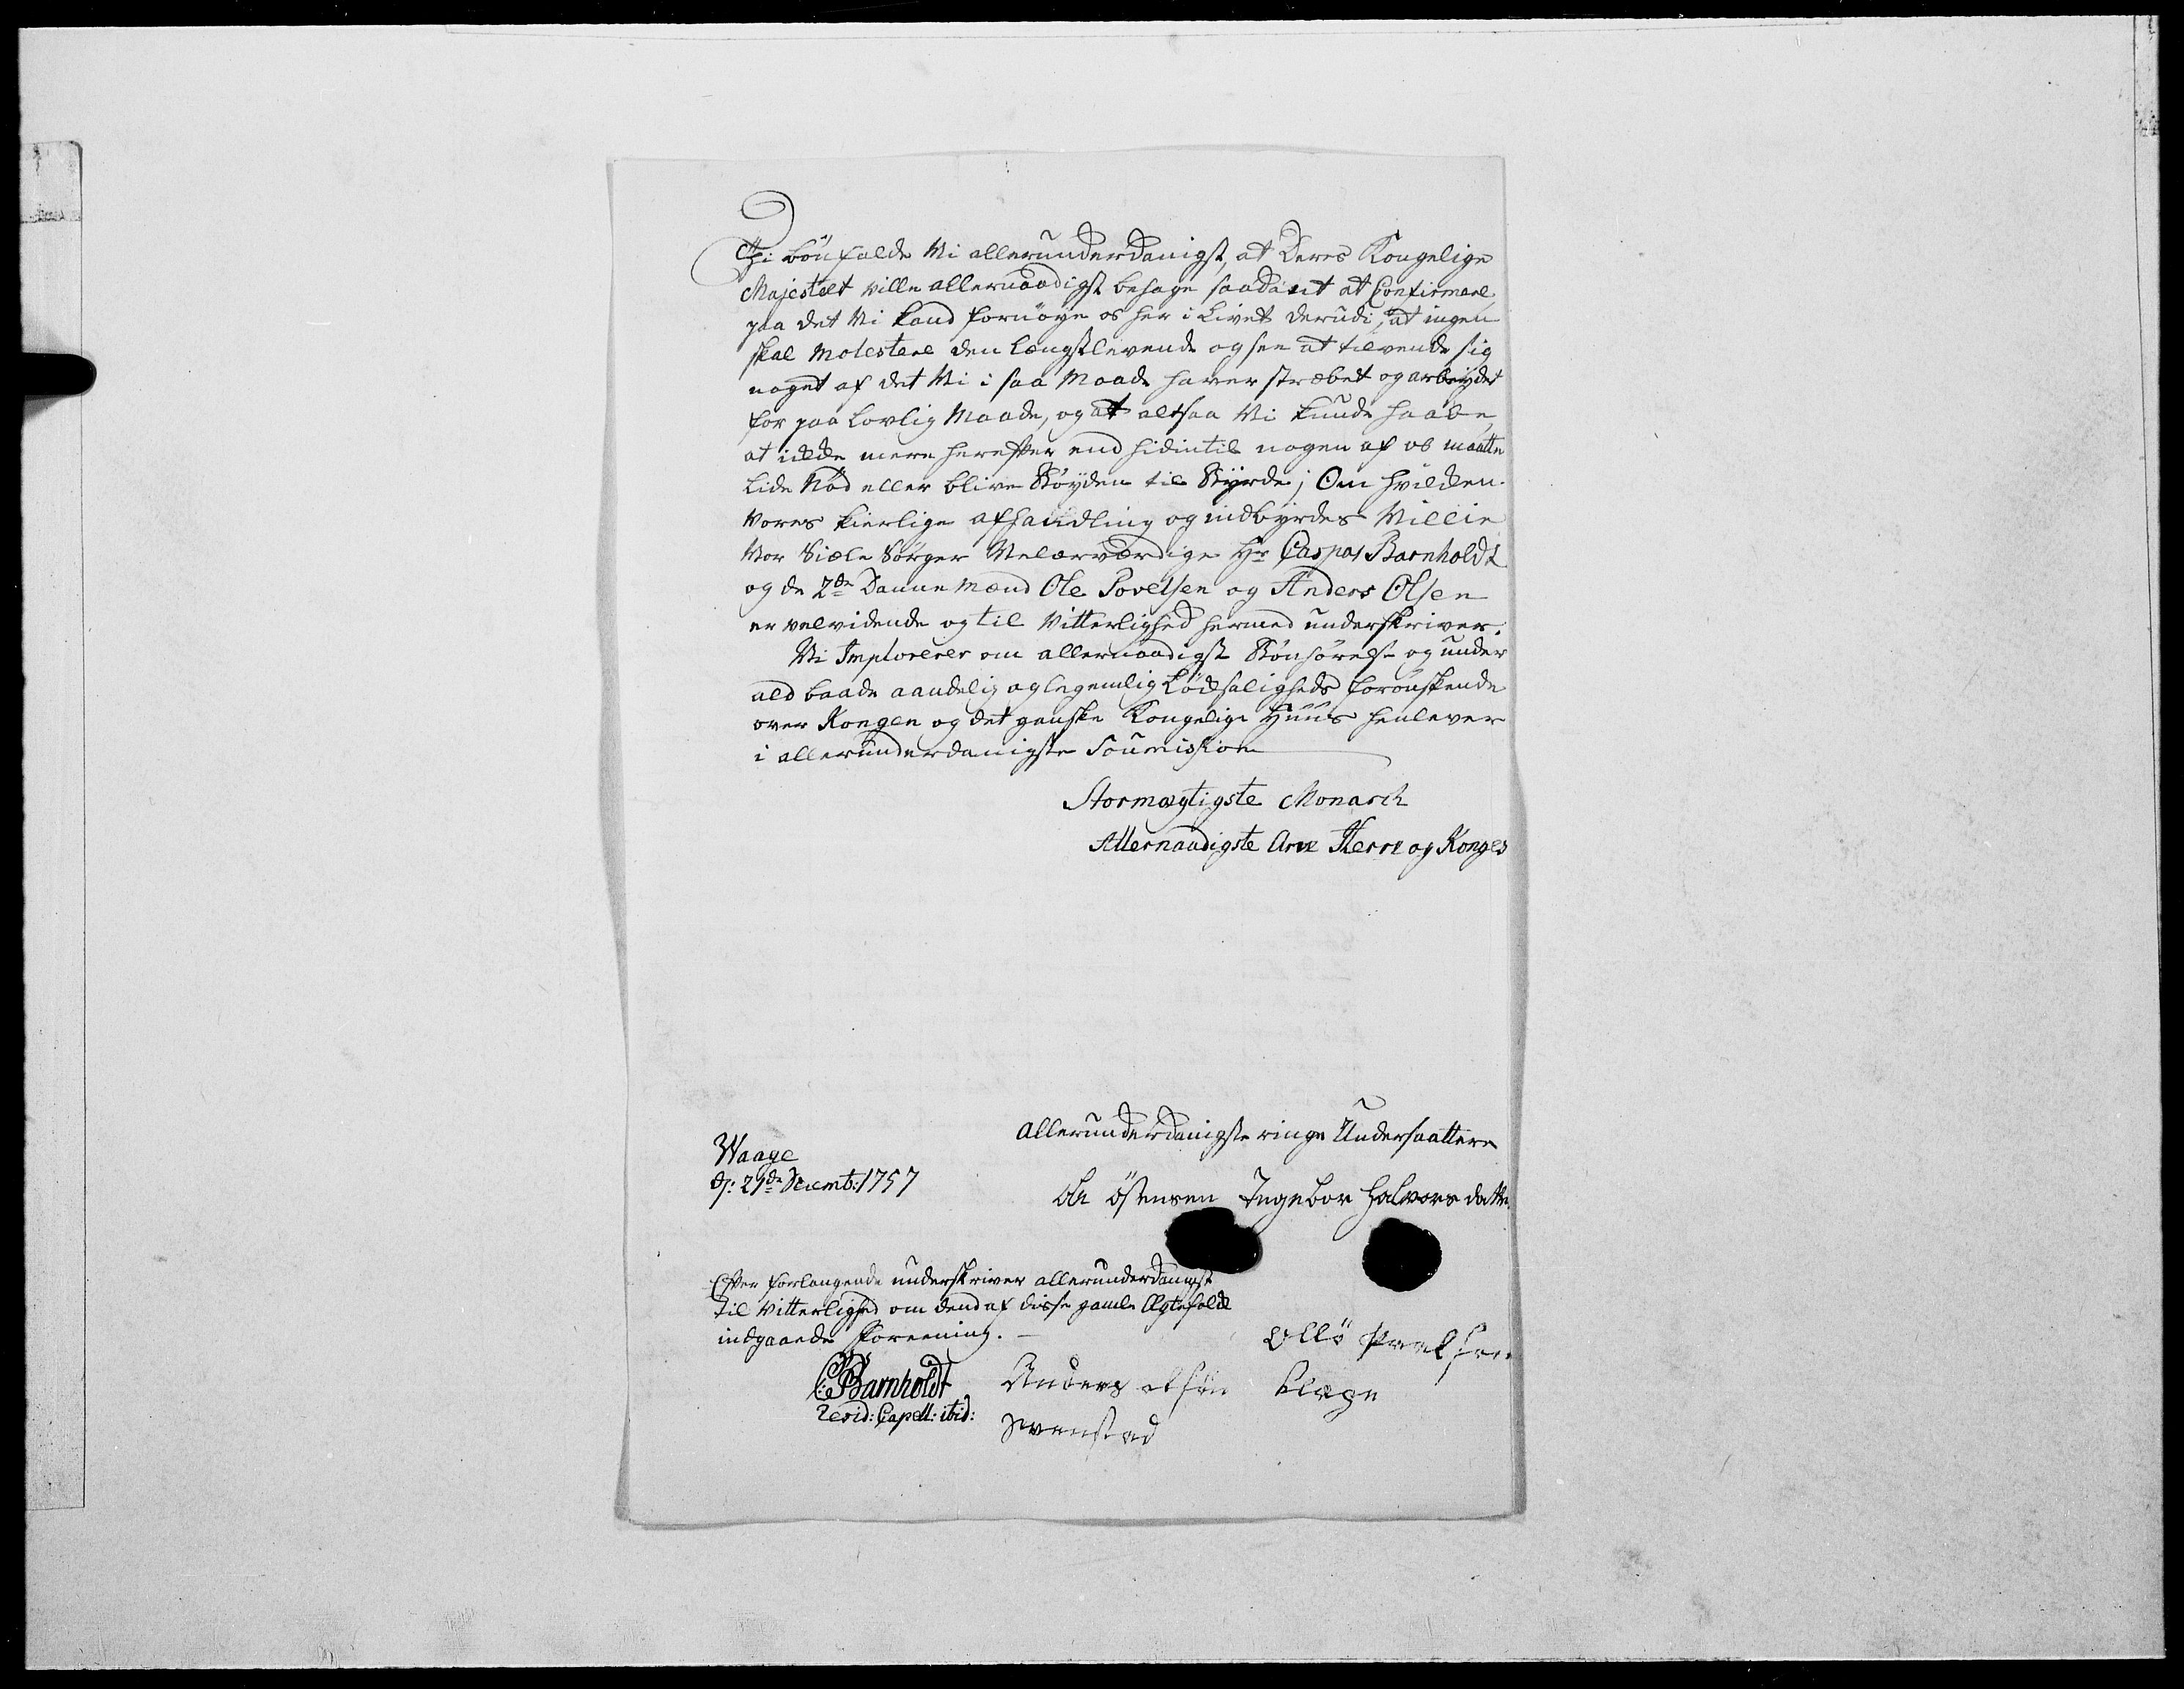 Thi bönfalde Vi allerunderdanigst, at Deres Kongelige
Majestæt ville allernaadigst behage saadant at Confirmere,
paa det Vi kand fornöye os her i Livet derudi, at ingen
skal molestere den Længstlevende og see at tilvende sig
noget af det Vi i saa Maade haver stræbet og arbeydet
for paa lovlig Maade, og at altsaa Vi kunde haabe,
at icke mere herefter end hidintil nogen af os maatte
lide Nöd eller blive til Byrde; Om hvilcken
vores kierlige afhandling og indbyrdes Villie
Vor Siæle Sörger Velærværdige Hr Caspar Barnholdt
og de 2de Danne Mænd Ole Povelsen og Anders Olsen
er velvidende og til Vitterlighed hermed underskriver.
Vi Implorerer om allernaadigst Bönhörelse og under
ald baade aandelig og legemlig Lücksaligheds forönskende
over Kongen og det gandske Kongelige Huus henlever
i allerunderdanigste Soumission
Stormægtigste Monarch
Allernaadigste Arve Herre og Konges
allerunderdanigste ringe Undersaattere
Waage
d: 21de Decemb: 1757
Ole Östensen Ingebor Halvors datter
Efter forlangende underskriver allerunderdanigst
til Vitterlighed om dend af disse gamle Ægtefolck
indgaaede Foreening.
C: Barnholdt
Resid: Capell: ibid:
Anders olsön
Svenstad
Ollö Paalsen